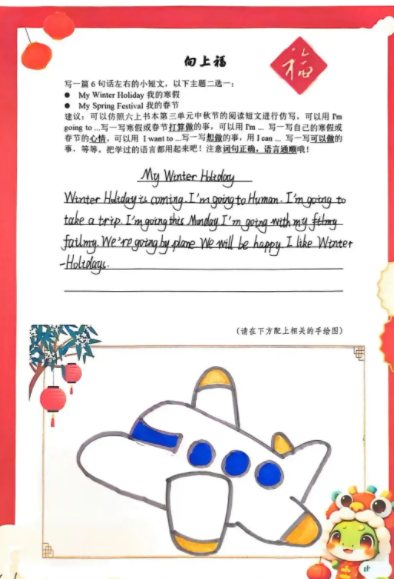 向上福
福
写一篇 6 句话左右的小短文，以下主题二选一：
● My Winter Holiday 我的寒假
● My Spring Festival 我的春节
建议：可以仿照六上书本第三单元中秋节的阅读短文进行仿写，可以用 I'm
going to ...写一写寒假或春节打算做的事，可以用 I'm ... 写一写自己的寒假或
春节的心情，可以用 I want to ...写一写想做的事，用 I can ... 写一写可以做的
事，等等。把学过的语言都用起来吧！注意词句正确，语言通顺哦！
My Winter Holiday
Winter Holiday is coming. I'm going to Human. I'm going to
take a trip. I'm going this Munday. I'm going with my
failmy. We're going by plane. We will be happy. I like Winter
-Holidays.
（请在下方配上相关的手绘图）